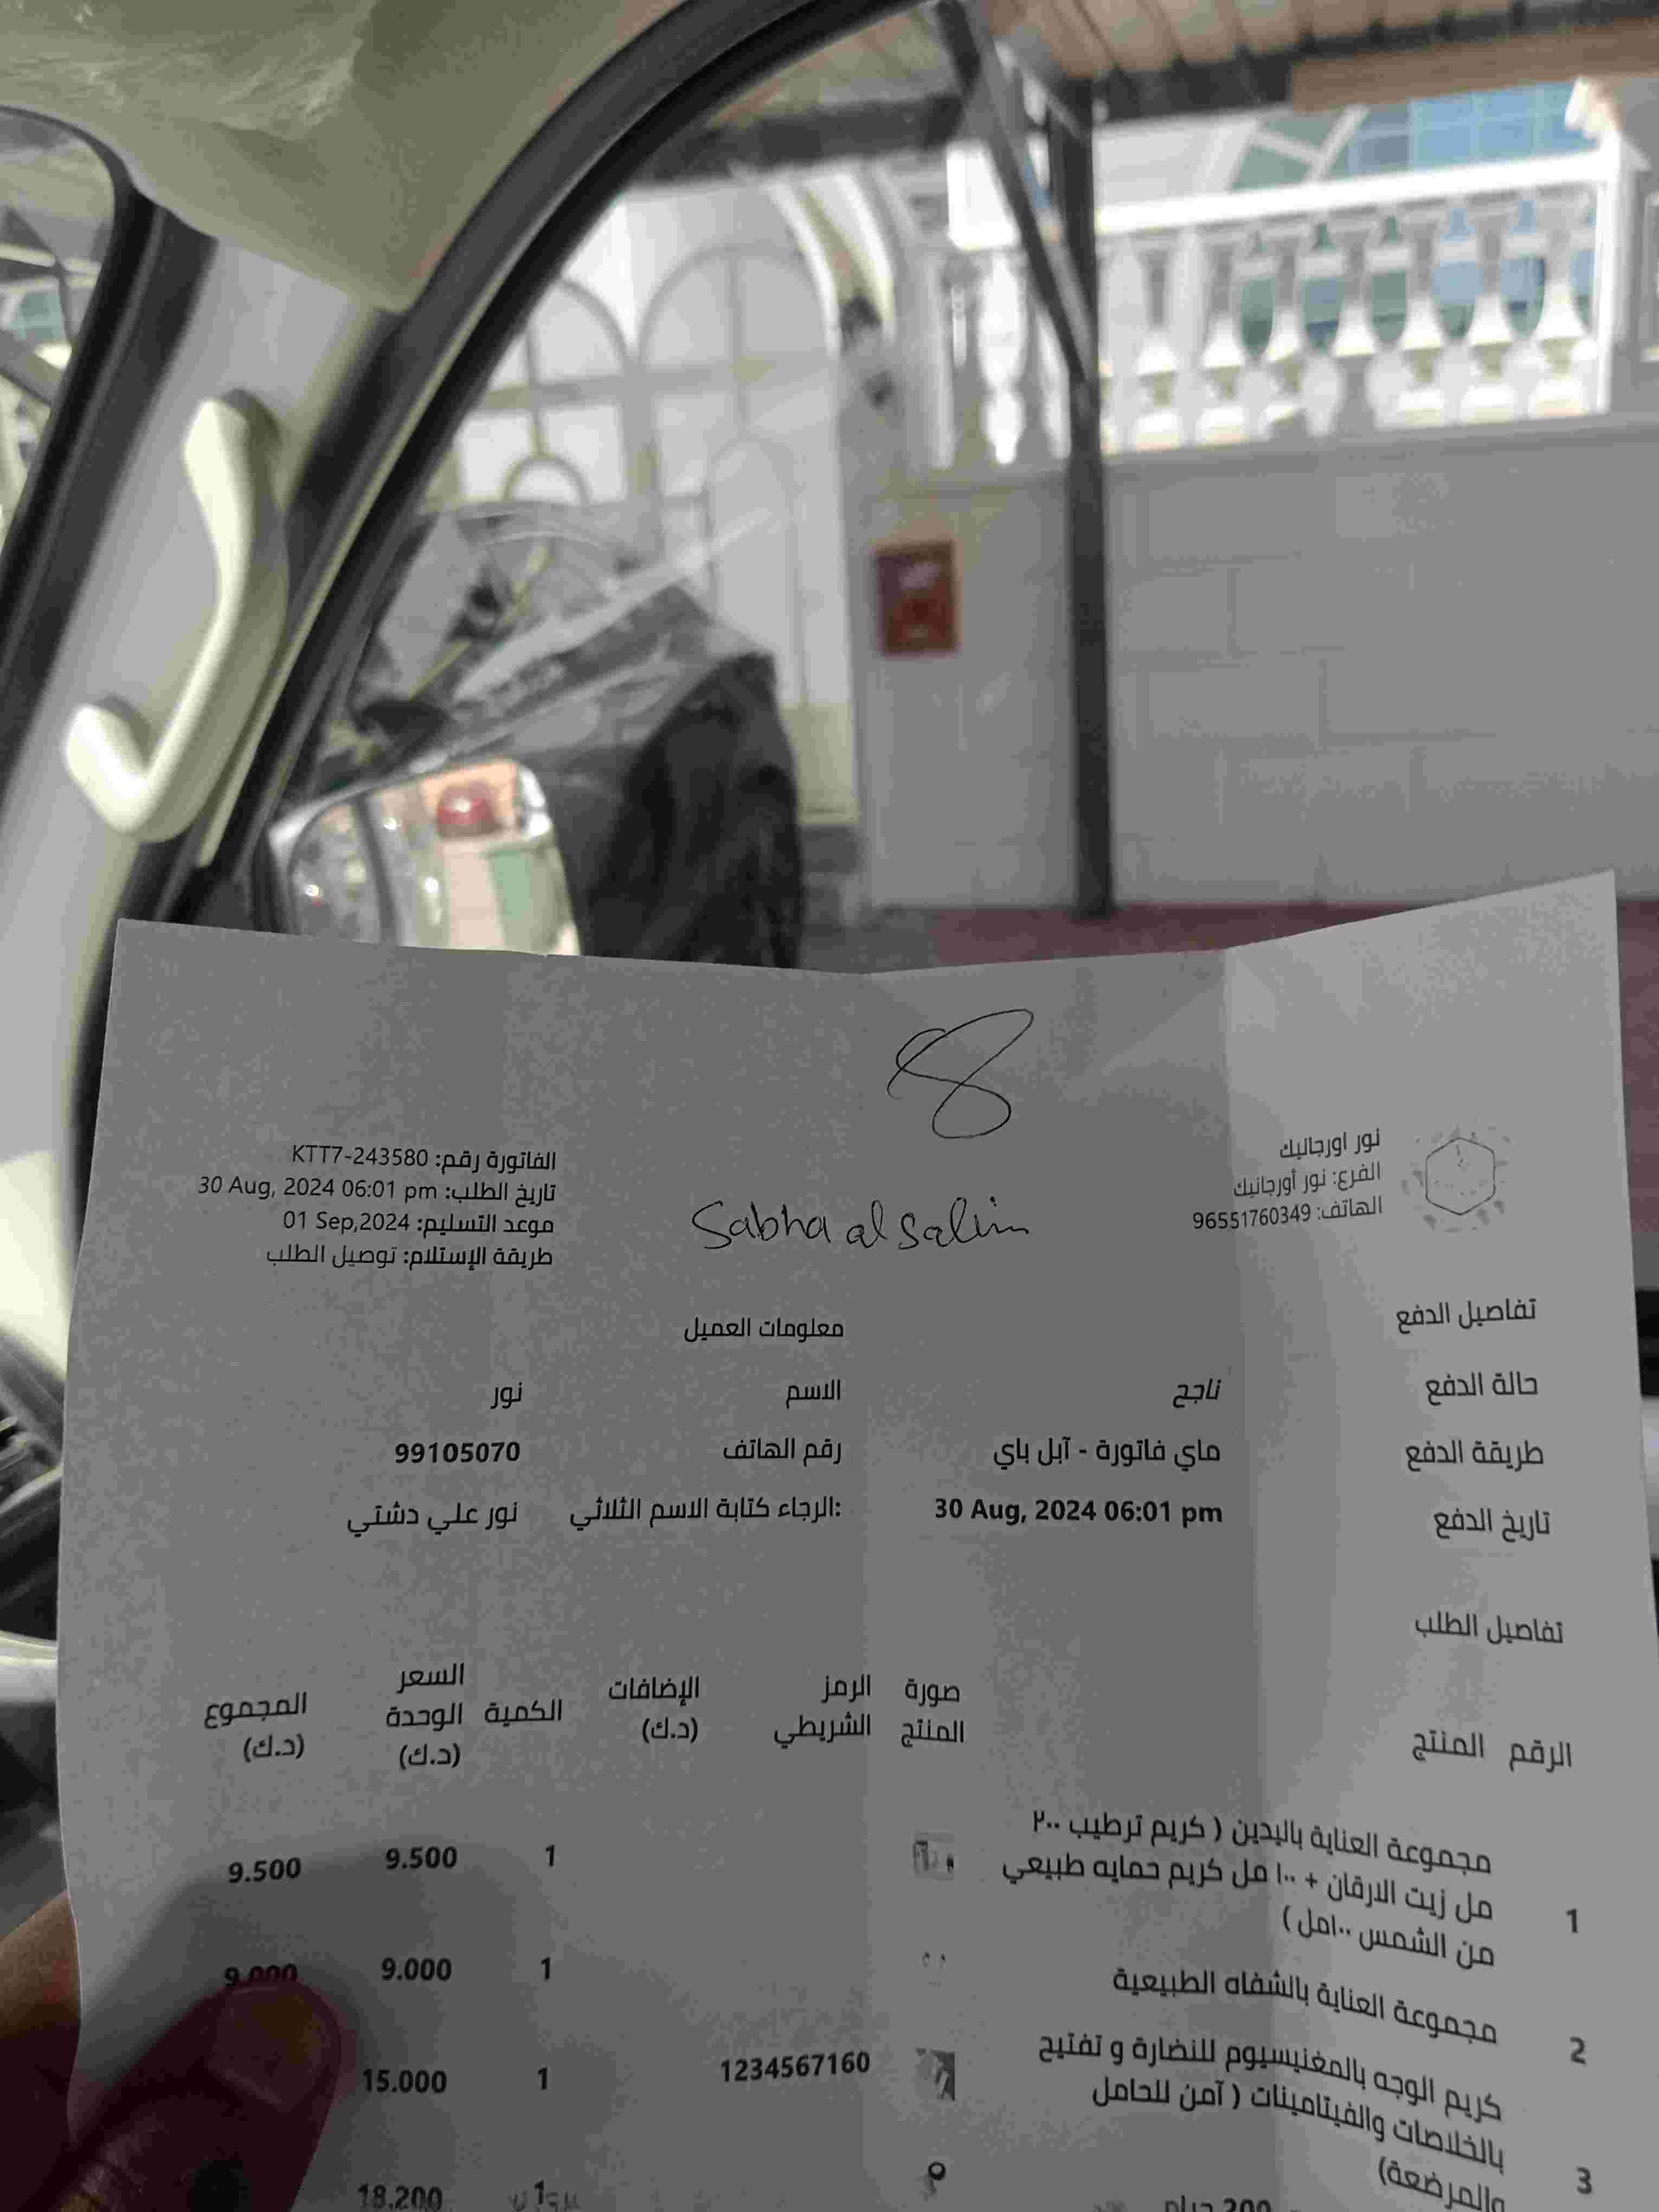 8
نور اورجانيك
الفرع: نور أورجانيك
الهاتف: 96551760349
Sabha al salim
الفاتورة رقم: KTT7-243580
تاريخ الطلب: 30 Aug, 2024 06:01 pm
موعد التسليم: 01 Sep,2024
طريقة الإستلام: توصيل الطلب
تفاصيل الدفع
حالة الدفع ناجح
طريقة الدفع ماي فاتورة - آبل باي
تاريخ الدفع 30 Aug, 2024 06:01 pm
معلومات العميل
الاسم نور
رقم الهاتف 99105070
الرجاء كتابة الاسم الثلاثي: نور علي دشتي
تفاصيل الطلب
الرقم المنتج صورة المنتج الرمز الشريطي الإضافات (د.ك) الكمية السعر الوحدة (د.ك) المجموع (د.ك)
1 مجموعة العناية باليدين ( كريم ترطيب ٢٠٠
مل زيت الارقان + ١٠٠ مل كريم حمايه طبيعي
من الشمس ١٠٠مل )
1 9.500 9.500
2 مجموعة العناية بالشفاه الطبيعية 1 9.000 9.000
3 كريم الوجه بالمغنيسيوم للنضارة و تفتيح
بالخلاصات والفيتامينات ( آمن للحامل
والمرضعة)
1234567160 1 15.000
200 1 18.200